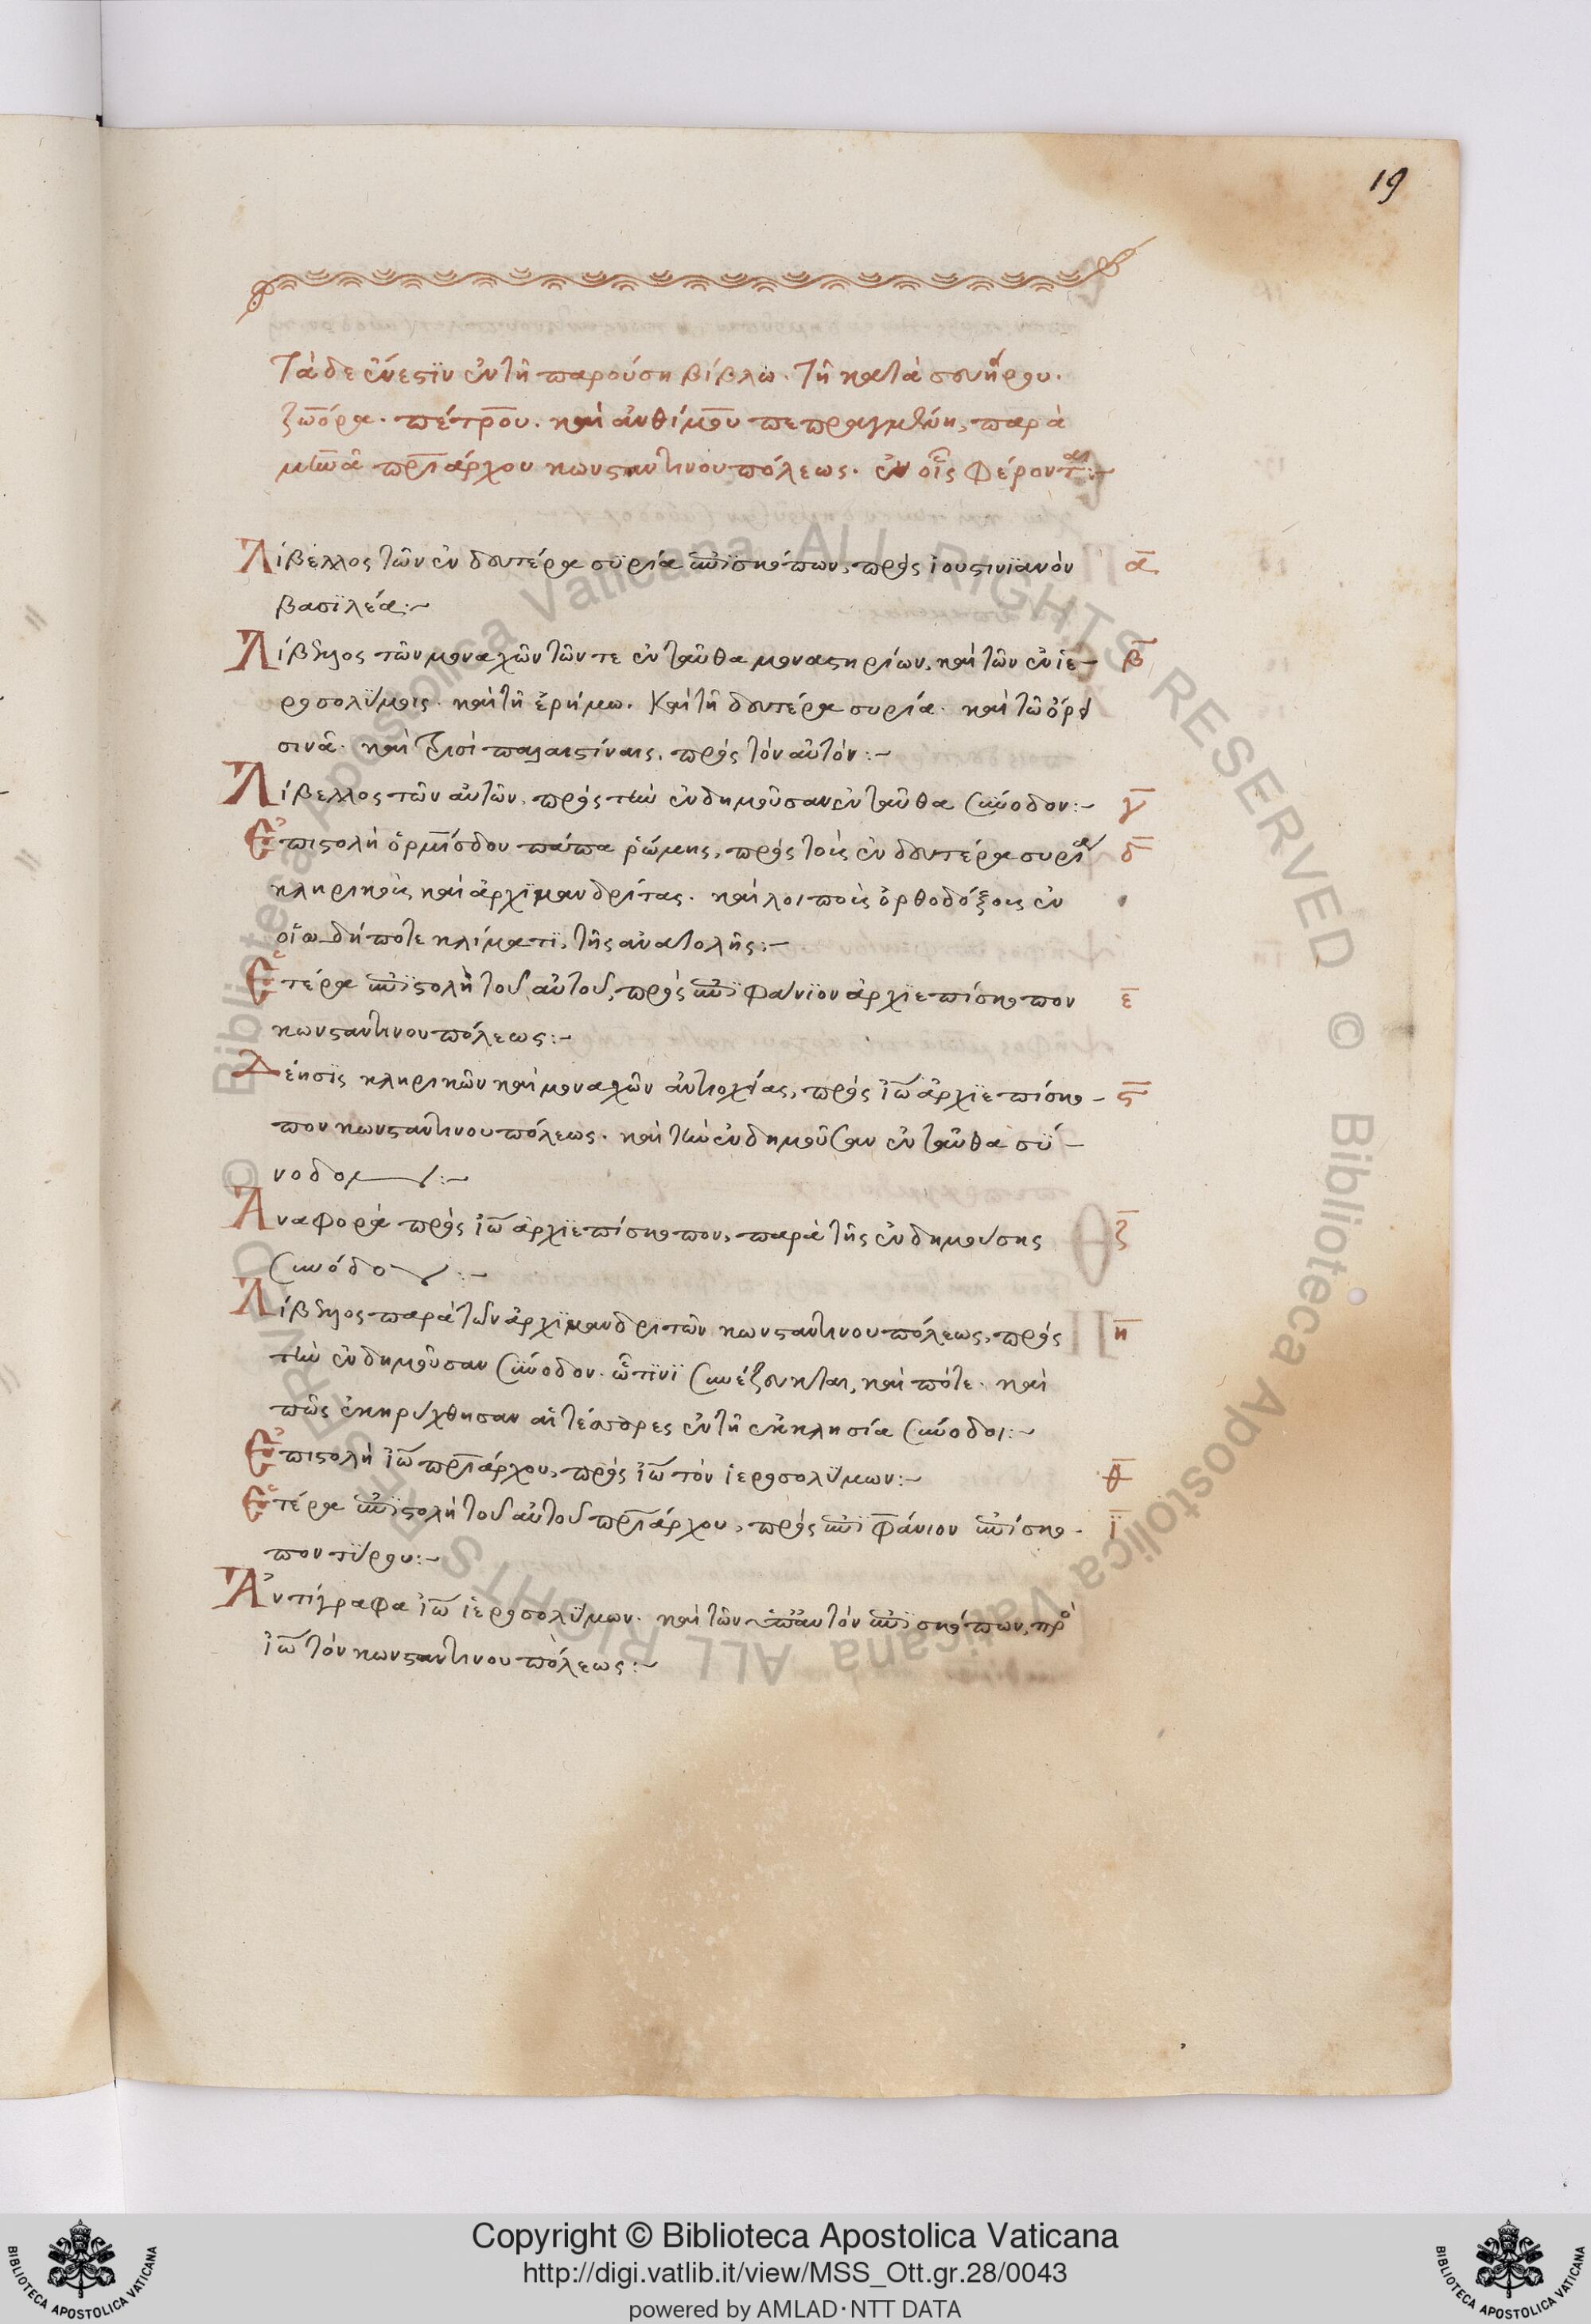 19
Τάδε ἔνεστϊν ἐν τῆ παρούση βίβλω. τῆ κατὰ σευήρου.
ζωόρα. πέτρου. καὶ ἀνθίμου πεπραγμένη, παρὰ
μηνᾶ πριάρχου κωνσταντινουπόλεως. ἐν οἷς φέρονται:~
Λίβελλος τῶν ἐν δευτέρα συρία ἐπϊσκόπων, πρὸς ἰουστινϊανὸν α
βασϊλέα:~
Λίβελλος τῶν μοναχῶν τῶν τε ἐνταῦθα μοναστηρίων, καὶ τῶν ἐν ἱε- β
ροσολύμοις. καὶ τῆ ἐρήμω. καὶ τῆ δευτέρα συρία. καὶ τῶ ὄρει
σινᾶ. καὶ τρισὶ παλαιστίναις, πρὸς τὸν αὐτόν:~
Λίβελλος τῶν αὐτῶν, πρὸς τὴν ἐνδημοῦσαν ἐνταῦθα σύνοδον:~ γ
Ἐπιστολὴ ὁρμίσδου πάπα ῥώμης, πρὸς τοὺς ἐν δευτέρα συρία δ
κληρικοὺς καὶ ἀρχϊμανδρίτας. καὶ λοιποὺς ὀρθοδόξους ἐν
οἵω δήποτε κλίματϊ, τῆς ἀνατολῆς:~
Ἑτέρα ἐπϊστολὴ τοῦ αὐτοῦ, πρὸς ἐπϊφάνϊον ἀρχϊεπίσκοπον ε
κωνσταντινουπόλεως:~
Δέησϊς κληρικῶν καὶ μοναχῶν ἀντιοχείας, πρὸς ἰω ἀρχϊεπίσκο- ς
πον κωνσταντινουπόλεως. καὶ τὴν ἐνδημοῦσαν ἐνταῦθα σύ-
νοδον:~
Ἀναφορὰ πρὸς ἰω ἀρχϊεπίσκοπον, παρὰ τῆς ἐνδημούσης ζ
συνόδου:~
Λίβελλος παρὰ τῶν ἀρχϊμανδριτῶν κωνσταντινουπόλεως, πρὸς η
τὴν ἐνδημοῦσαν σύνοδον. ἐπϊ τίνϊ συνέζευκται, καὶ πότε. καὶ
πῶς ἐκηρύχθησαν αἱ τέσσαρες ἐν τῆ ἐκκλησία σύνοδοι:~
Ἐπιστολὴ ἰω πριάρχου, πρὸς ἰω τὸν ἱεροσολύμων:~ θ
Ἑτέρα ἐπϊστολὴ τοῦ αὐτοῦ πριάρχου, πρὸς ἐπϊφάνιον ἐπίσκο- ϊ
πον τύρου:~
Ἀντίγραφα ἰω ἱεροσολύμων. καὶ τῶν ὑπ' αὐτὸν ἐπϊσκόπων, πρὸς
ἰω τὸν κωνσταντινουπόλεως:~
Biblioteca Apostolica Vaticana ALL RIGHTS RESERVED © Biblioteca Apostolica Vaticana ALL RIGHTS RESERVED ©
Copyright © Biblioteca Apostolica Vaticana
http://digi.vatlib.it/view/MSS_Ott.gr.28/0043
powered by AMLAD·NTT DATA
BIBLIOTECA APOSTOLICA VATICANA
BIBLIOTECA APOSTOLICA VATICANA